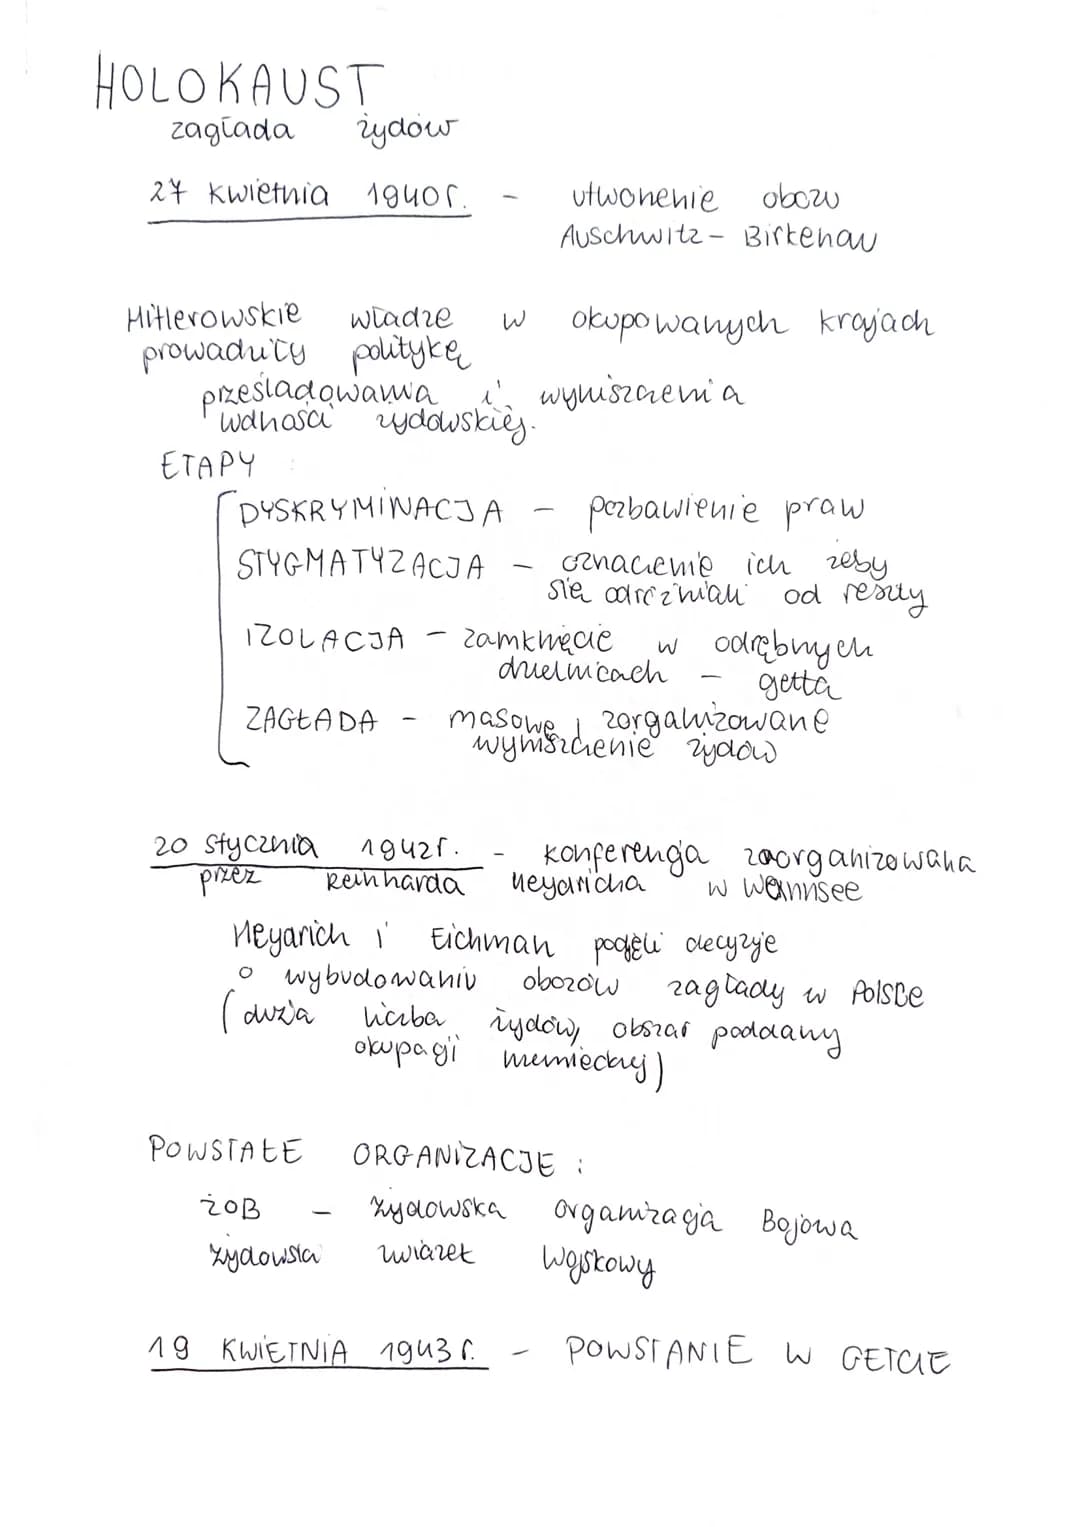 HOLOKAUST
zagłada żydów
27 kwietnia 1940r. - utworzenie obozu
Auschwitz - Birkenau
Hitlerowskie władze w okupowanych krajach
prowadziły politykę
prześladowania i wyniszczenia
ludności żydowskiej.
ETAPY :
DYSKRYMINACJA - pozbawienie praw
STYGMATYZACJA - oznaczenie ich żeby
się odróżniali od reszty
IZOLACJA - zamknięcie w odrębnych
dzielnicach - getta
ZAGŁADA - masowe i zorganizowane
wyniszczenie żydów
20 stycznia 1942r. - konferencja zaorganizowana
przez Reinharda Heydricha w Wannsee
Heyarich i Eichman podjęli decyzje
o wybudowaniu obozów zagłady w Polsce
(duża liczba żydów, obszar poddany
okupacji niemieckiej)
POWSTAŁE ORGANIZACJE :
ŻOB - żydowska Organizacja Bojowa
żydowski związek Wojskowy
19 KWIETNIA 1943 r. - POWSTANIE W GETCIE